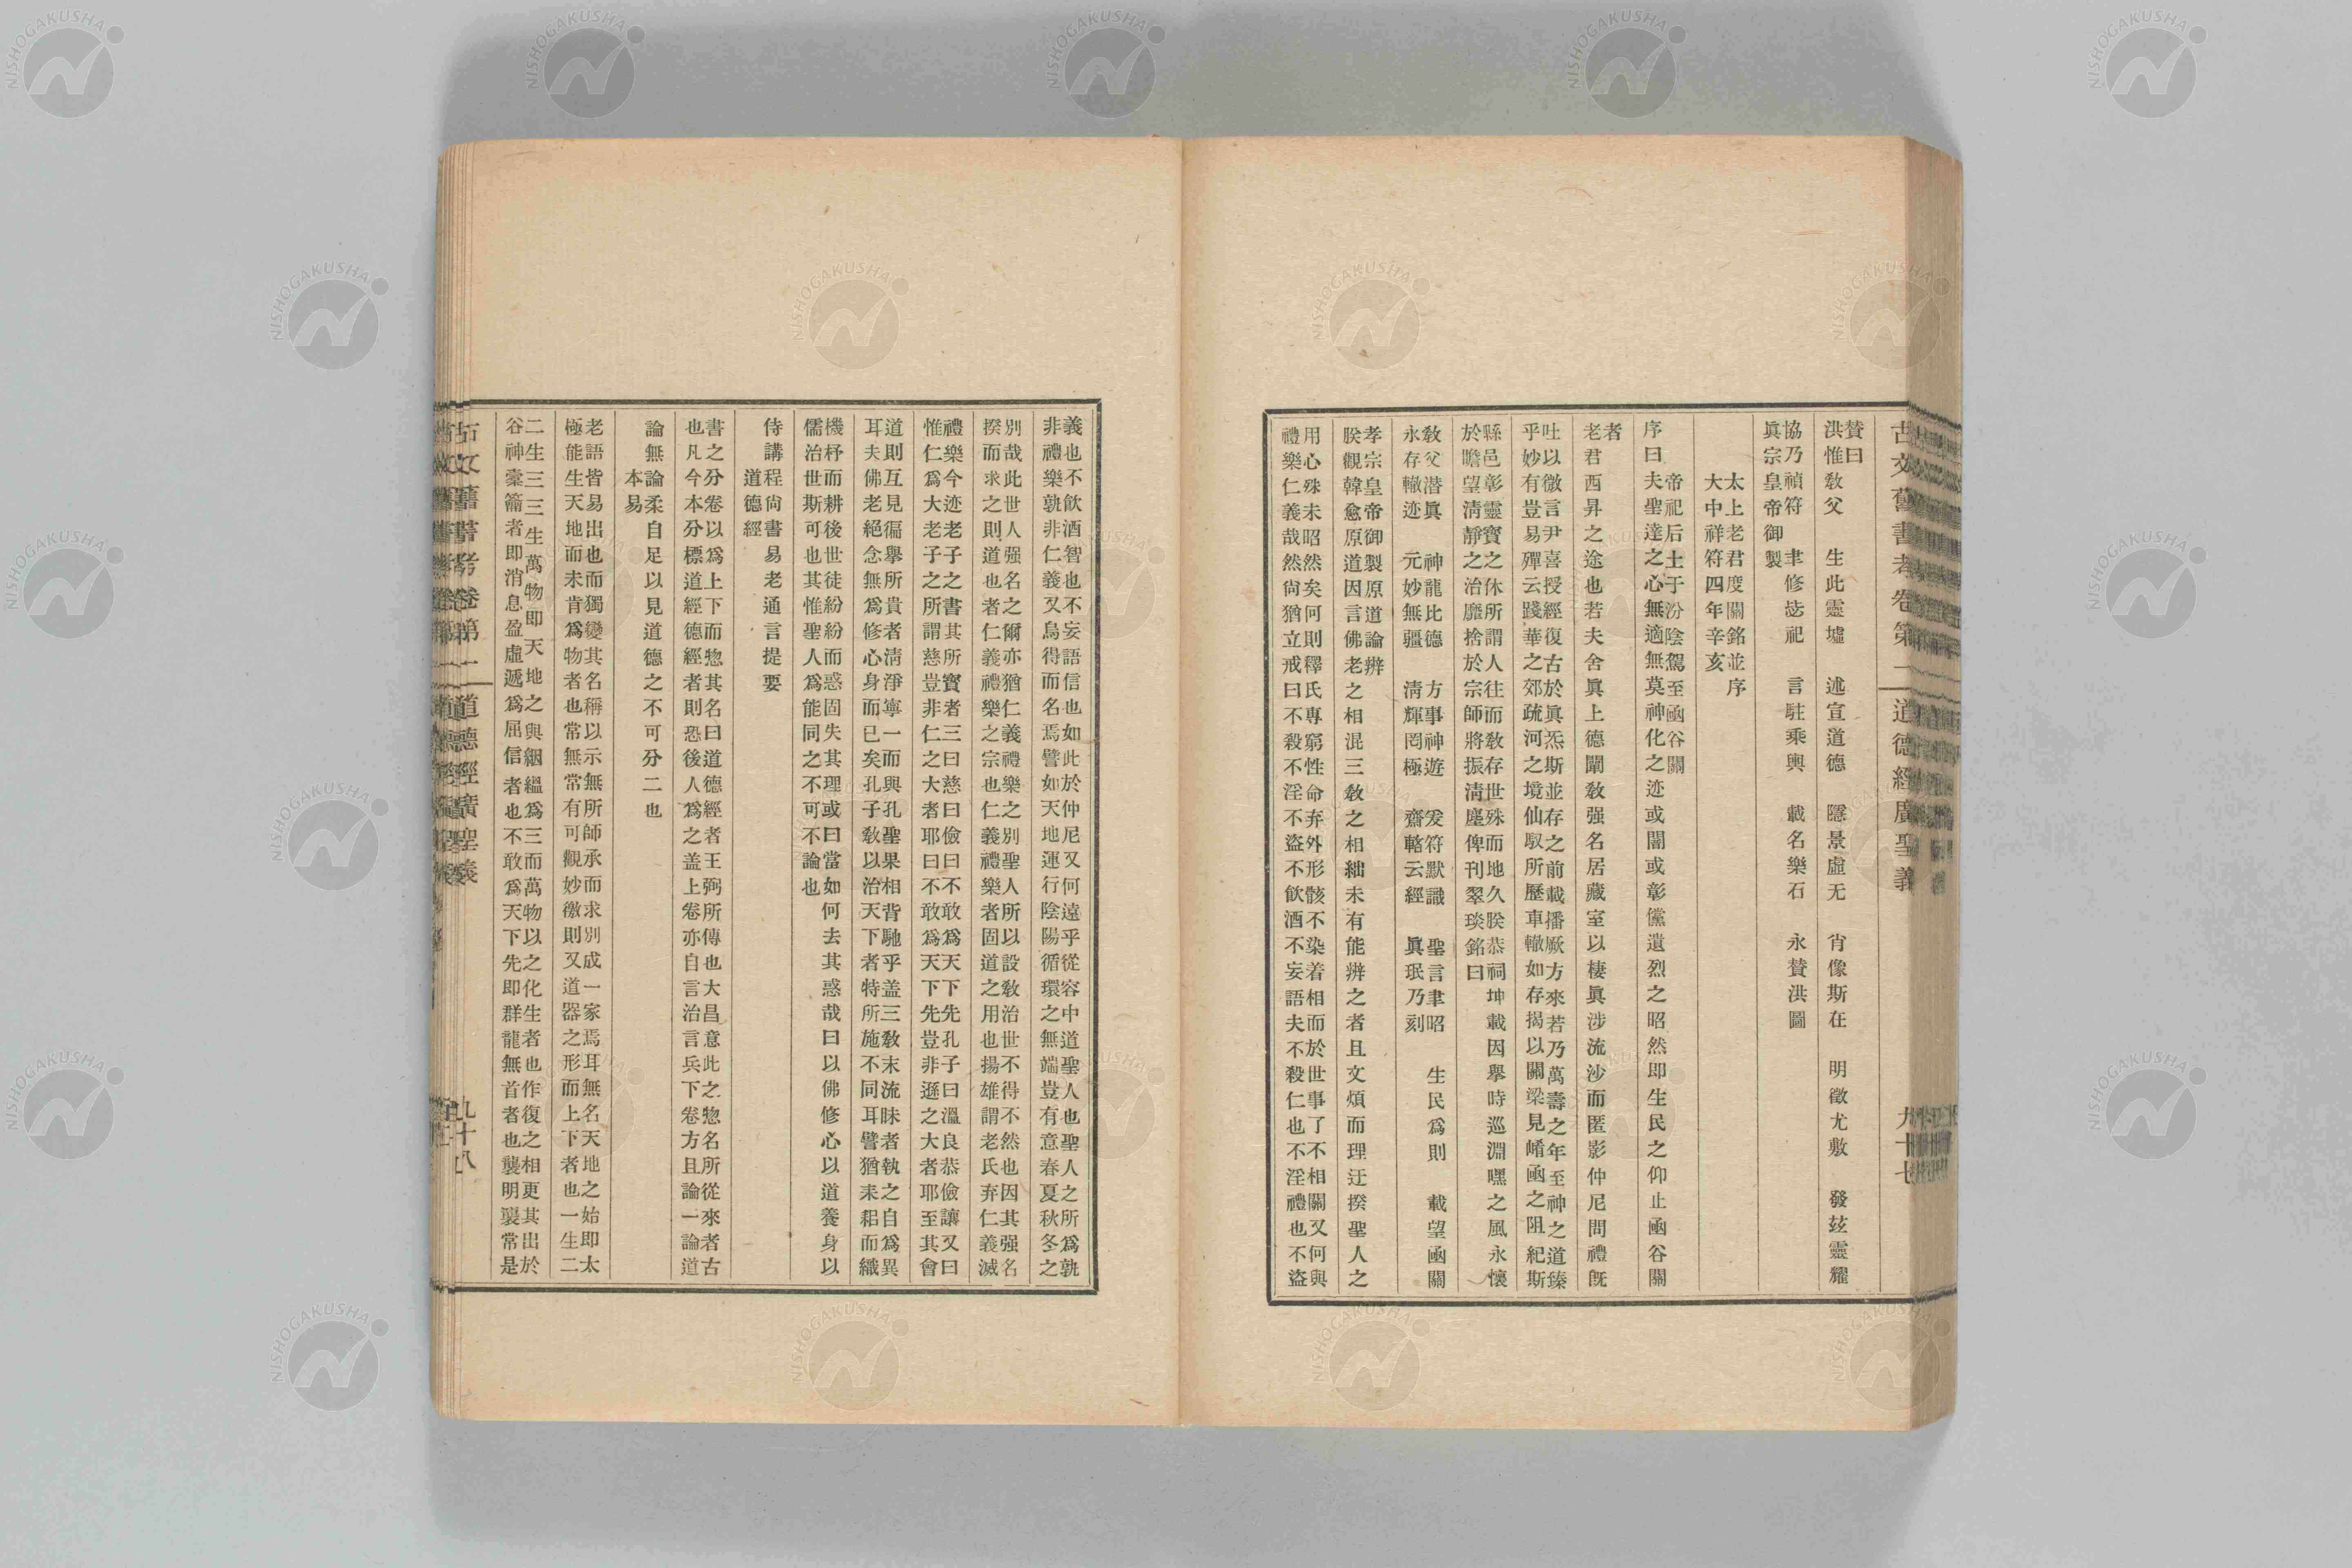 古文舊書考卷第二 道德經廣聖義 九十七
贊曰
洪惟教父 生此靈墟 述宣道德 隱景虛无 肖像斯在 明徵尤敷 發玆靈耀
協乃禎符 聿修毖祀 言駐乘輿 載名樂石 永贊洪圖
眞宗皇帝御製
太上老君度關銘並序
大中祥符四年辛亥
帝祀后土于汾陰駕至凾谷關
序曰夫聖達之心無適無莫神化之迹或闇或彰儻遺烈之昭然即生民之仰止凾谷關
者
老君西昇之途也若夫舍眞上德闡教强名居藏室以棲眞涉流沙而匿影仲尼問禮旣
吐以微言尹喜授經復古於眞炁斯並存之前載播厥方來若乃萬壽之年至神之道臻
乎妙有豈易殫云踐華之郊疏河之境仙馭所歷車轍如存揭以關梁見崤凾之阻紀斯
縣邑彰靈寶之休所謂人往而教存世殊而地久朕恭祠坤載因擧時巡淵嘿之風永懷
於瞻望淸靜之治靡捨於宗師將振淸塵俾刊翠琰銘曰
教父潜眞 神龍比德 方事神遊 爰符默識 聖言聿昭 生民爲則 載望凾關
永存轍迹 元妙無疆 淸輝罔極 齋轄云經 眞珉乃刻
孝宗皇帝御製原道論辨
朕觀韓愈原道因言佛老之相混三教之相絀未有能辨之者且文煩而理迂揆聖人之
用心殊未昭然矣何則釋氏專窮性命弃外形骸不染着相而於世事了不相關又何與
禮樂仁義哉然尙猶立戒曰不殺不淫不盜不飮酒不妄語夫不殺仁也不淫禮也不盜
義也不飮酒智也不妄語信也如此於仲尼又何遠乎從容中道聖人也聖人之所爲孰
非禮樂孰非仁義又烏得而名焉譬如天地運行陰陽循環之無端豈有意春夏秋冬之
別哉此世人强名之爾亦猶仁義禮樂之別聖人所以設教治世不得不然也因其强名
揆而求之則道也者仁義禮樂之宗也仁義禮樂者固道之用也揚雄謂老氏弃仁義滅
禮樂今迹老子之書其所寳者三曰慈曰儉曰不敢爲天下先孔子曰溫良恭儉讓又曰
惟仁爲大老子之所謂慈豈非仁之大者耶曰不敢爲天下先豈非遜之大者耶至其會
道則互見徧擧所貴者淸淨寧一而與孔聖果相背馳乎盖三教末流昧者執之自爲異
耳夫佛老絕念無爲修心身而已矣孔子教以治天下者特所施不同耳譬猶耒耜而織
機杼而耕後世徒紛紛而惑固失其理或曰當如何去其惑哉曰以佛修心以道養身以
儒治世斯可也其惟聖人爲能同之不可不論也
侍講程尙書易老通言提要
道德經
書之分卷以爲上下而惣其名曰道德經者王弼所傳也大昌意此之惣名所從來者古
也凡今本分標道經德經者則恐後人爲之盖上卷亦自言治言兵下卷方且論一論道
論無論柔自足以見道德之不可分二也
本易
老語皆易出也而獨變其名稱以示無所師承而求別成一家焉耳無名天地之始即太
極能生天地而未肯爲物者也常無常有可觀妙徼則又道器之形而上下者也一生二
二生三三生萬物即天地之與絪縕爲三而萬物以之化生者也作復之相更其出於
谷神橐籥者即消息盈虛遞爲屈信者也不敢爲天下先即群龍無首者也襲明襲常是
古文舊書考卷第二 道德經廣聖義 九十八